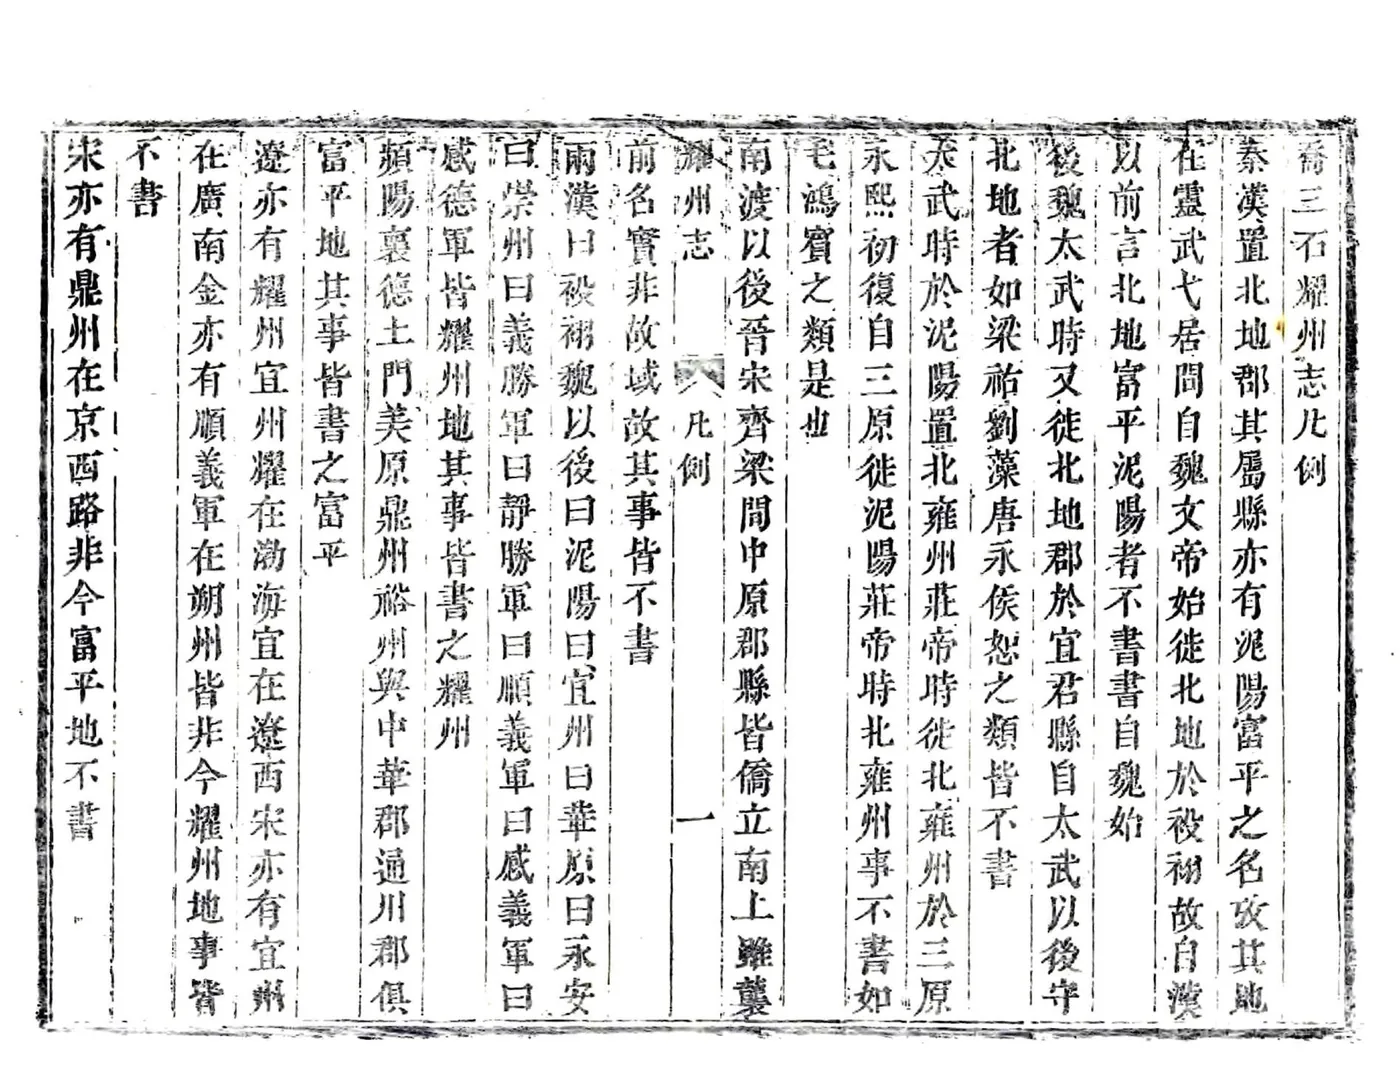 喬三石耀州志凡例
秦漢置北地郡其屬縣亦有泥陽富平之名攷其地
在靈武弋居間自魏文帝始徙北地於祋祤故自漢
以前言北地富平泥陽者不書書自魏始
後魏太武時又徙北地郡於宜君縣自太武以後守
北地者如梁祐劉藻唐永侯恕之類皆不書
太武時於泥陽置北雍州莊帝時徙北雍州於三原
永熙初復自三原徙泥陽莊帝時北雍州事不書如
毛鴻賓之類是也
南渡以後晉宋齊梁間中原郡縣皆僑立南土雖襲
耀州志 凡例 一
前名實非故域故其事皆不書
兩漢曰祋祤魏以後曰泥陽曰宜州曰華原曰永安
曰崇州曰義勝軍曰靜勝軍曰順義軍曰感義軍曰
感德軍皆耀州地其事皆書之耀州
頻陽裏德土門美原鼎州裕州與中華郡通川郡俱
富平地其事皆書之富平
遼亦有耀州宜州耀在渤海宜在遼西宋亦有宜州
在廣南金亦有順義軍在朔州皆非今耀州地事皆
不書
宋亦有鼎州在京西路非今富平地不書